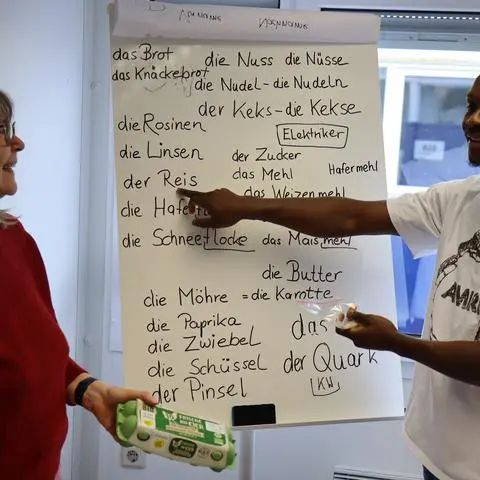 das Brot
das Knäckebrot
die Nuss die Nüsse
die Nudel - die Nudeln
der Keks - die Kekse
die Rosinen
Elektriker
die Linsen
der Zucker
der Reis
das Mehl
Hafermehl
das Weizenmehl
die
die Schneeflocke
das Maismehl
die Butter
die Möhre = die Karotte
die Paprika
das
die Zwiebel
die Schüssel
der Quark
KW
der Pinsel